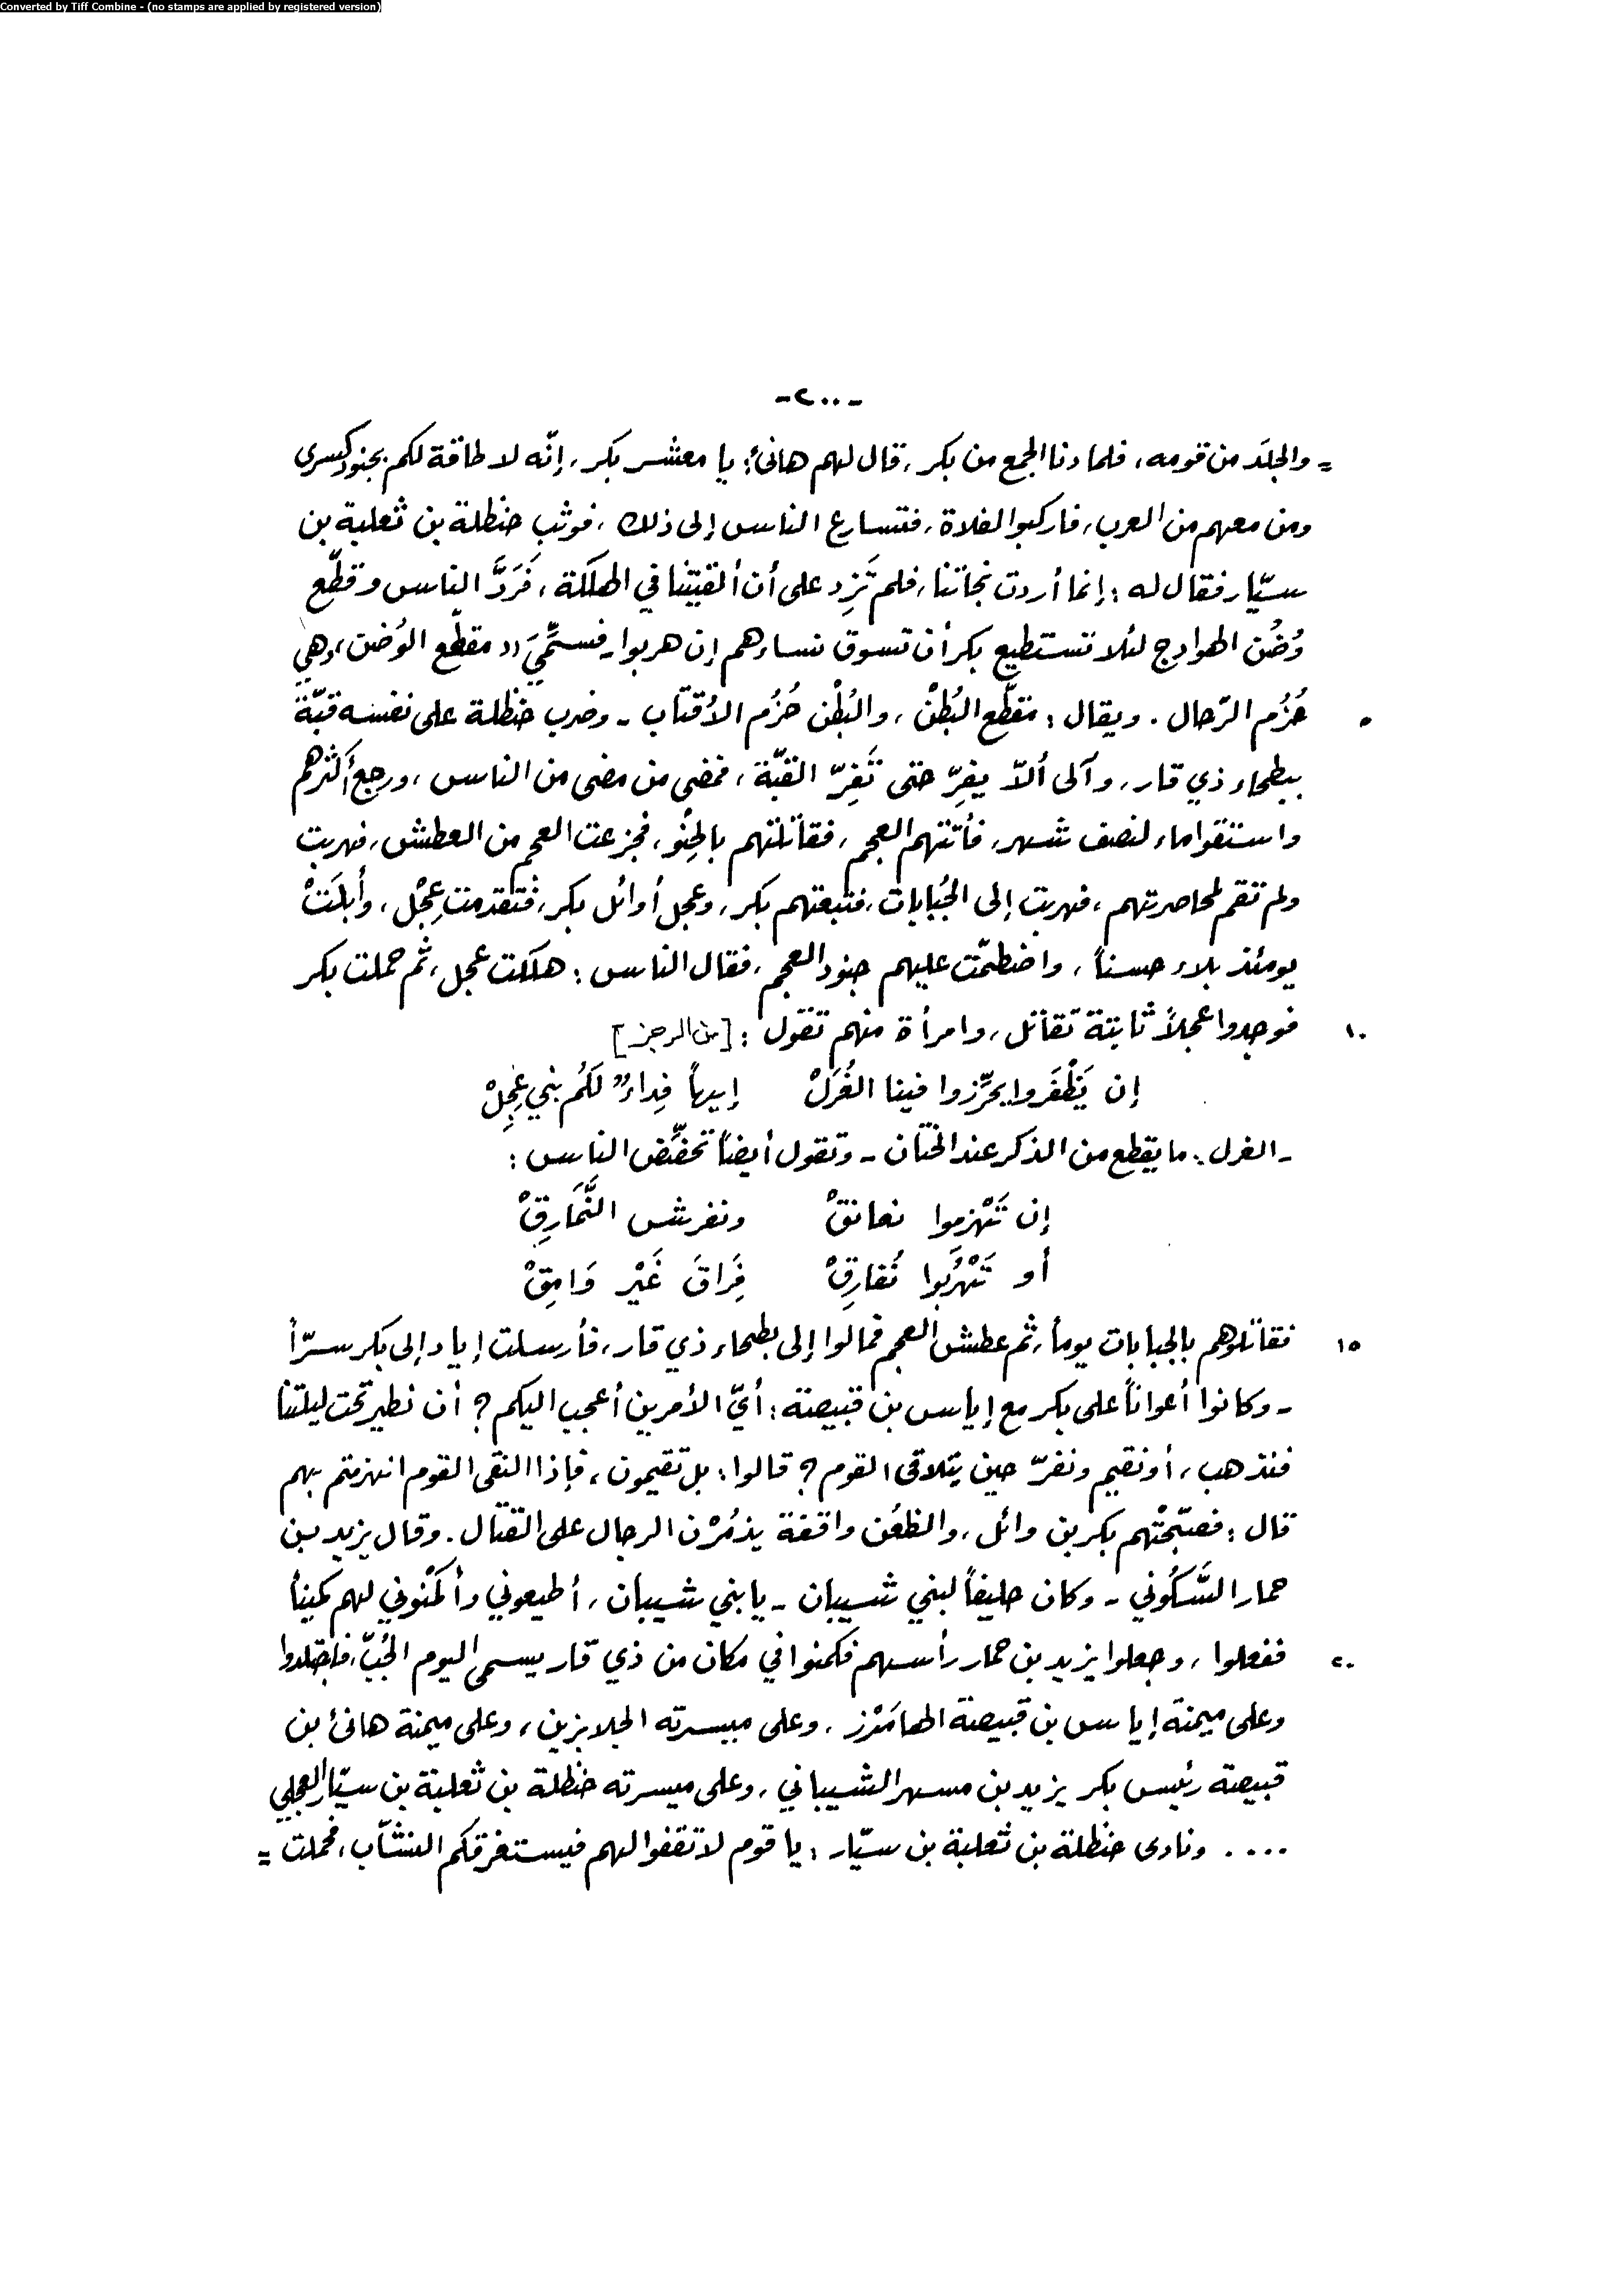 Converted by Tiff Combine - (no stamps are applied by registered version)
-٢٠٠-
= والجلَد من قومه، فلما دنا الجمع من بكر، قال لهم هانئ: يا معشر بكر، إنّه لا طاقة لكم بجنود كسرى
ومن معهم من العرب، فاركبوا الفلاة، فتسارع الناس إلى ذلك، فوثب حنظلة بن ثعلبة بن
سيّار فقال له: إنما أردت نجاتنا، فلم تَزِد على أن ألقيتنا في الهلكة، فَرَدَّ الناس وقطّع
وُضُن الهوادج لئلا تستطيع بكر أن تسوق نساءهم إن هربوا - فسمِّيَ "مقطّع الوُضن"، وهي
٥ حُزُم الرّحال. ويقال: مقطّع البُطُنْ، والبُطْن حُزُم الأقتاب - وضرب حنظلة على نفسه قبّة
ببطحاء ذي قار، وآلى ألاّ يفِرّ حتى تَفِرّ القبّة، فمضى من مضى من الناس، ورجع أكثرهم
واستقوا ماء لنصف شهر، فأتتهم العجم، فقاتلتهم بالحِنْو، فجزعت العجم من العطش، فهربت
ولم تقم لمحاصرتهم، فهربت إلى الجُبَابات، فتبعتهم بكر، وعجل أوائل بكر، فتقدمت عِجْل، وأبلَتْ
يومئذ بلاء حسناً، واضطمّت عليهم جنود العجم، فقال الناس: هلكت عجل، ثم حملت بكر
١٠ فوجدوا عجلاً ثابتة تقاتل، وامرأة منهم تقول: [من الرجز]
إن يَظْفَروا يحرِّزوا فينا الغُرَلْ إيهاً فِداءٌ لكُم بني عِجِلْ
- الغرل: ما يقطع من الذكر عند الختان - وتقول أيضاً تحضِّض الناس:
إن تَهْزموا نعانقْ ونفرش النَّمَارِقْ
أو تَهْرُبَوا نُفارِقْ فِرَاقَ غَيْر وَامِقْ
١٥ فقاتلوهم بالجبابات يوماً، ثم عطش العجم فمالوا إلى بطحاء ذي قار، فأرسلت إياد إلى بكر سرّاً
- وكانوا أعواناً على بكر مع إياس بن قبيصة: أيّ الأمرين أعجب اليكم؟ أن نطير تحت ليلتنا
فنذهب، أو نقيم ونفرّ حين يتلاقى القوم؟ قالوا: بل تقيمون، فإذا التقى القوم انهزمتم بهم
قال: فصبّحتْهم بكر بن وائل، والظعُن واقفة يذمُرْن الرجال على القتال. وقال يزيد بن
حمار السَّكُوني - وكان حليفاً لبني شيبان - يا بني شيبان، أطيعوني وأكمنوني لهم كميناً
٢٠ ففعلوا، وجعلوا يزيد بن حمار رأسهم فكمنوا في مكان من ذي قار يسمى اليوم الجُبّ، فاجتلدوا
وعلى ميمنة إياس بن قبيصة الهامَرْز، وعلى ميسرته الجلابزين، وعلى ميمنة هانئ بن
قبيصة رئيس بكر يزيد بن مسهر الشيباني، وعلى ميسرته حنظلة بن ثعلبة بن سيّار العجلي
.... ونادى حنظلة بن ثعلبة بن سيّار: يا قوم لا تقفوا لهم فيستغرقكم النشّاب، فحملت =